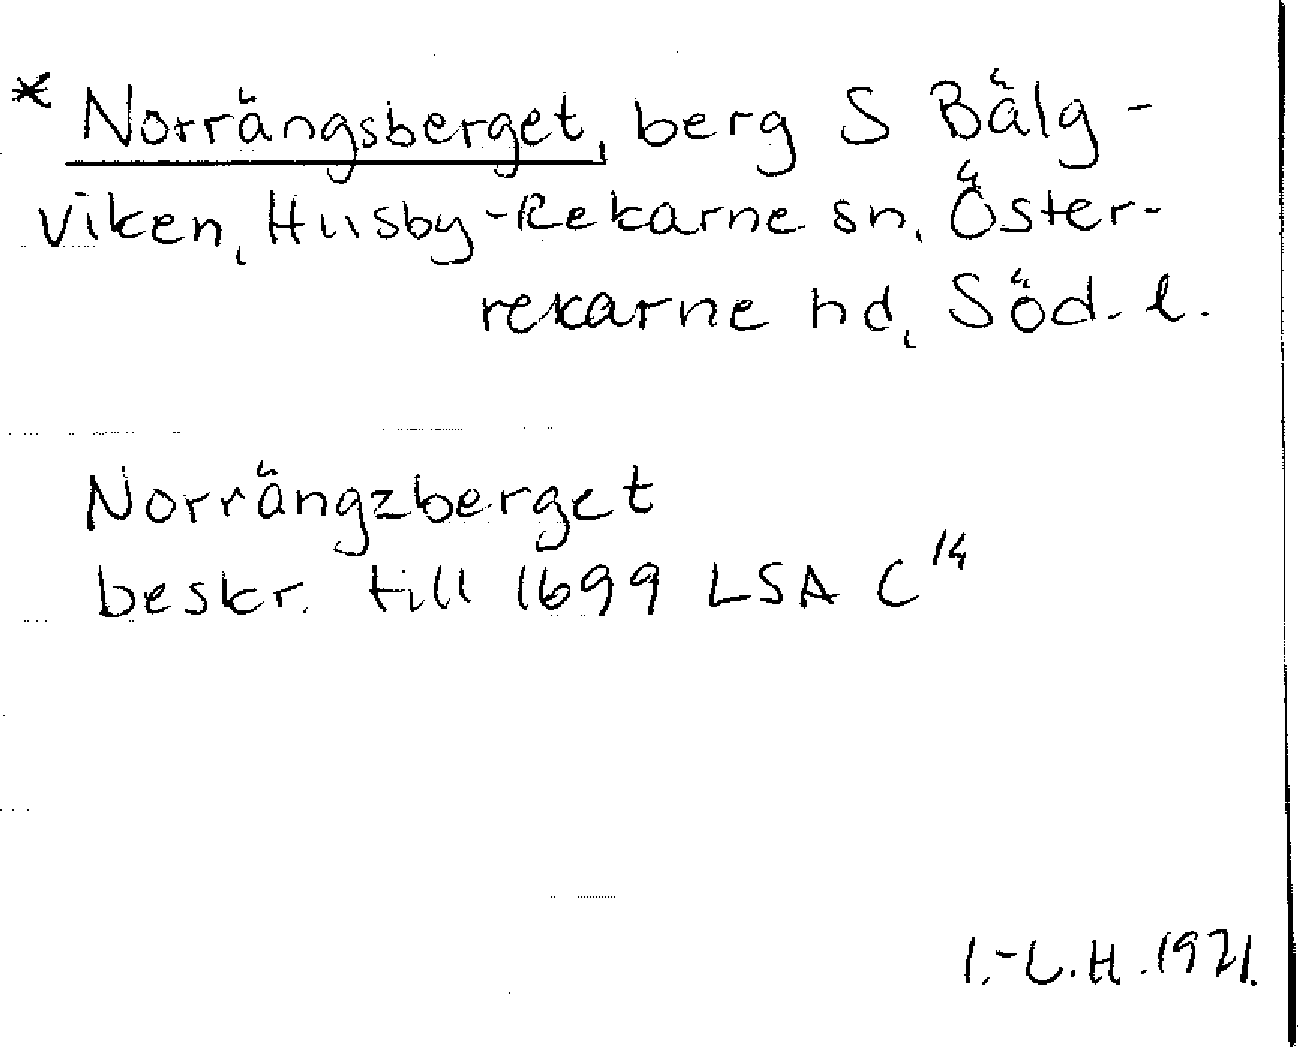 * Norrängsberget, berg S Bälg-
viken, Husby-Rekarne sn, Öster-
rekarne hd, Söd. l.
Norrängzberget
beskr. till 1699 LSA C¹⁴
I.-L.H. 1971.